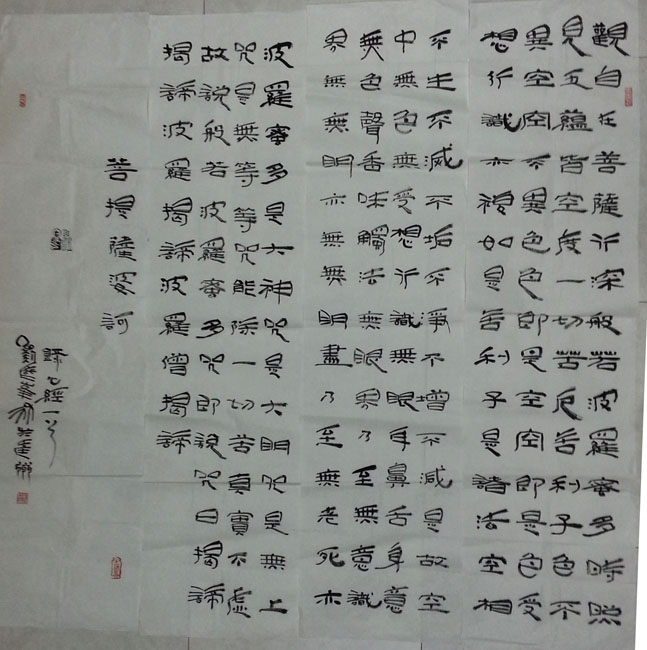 觀自在菩薩行深般若波羅蜜多時照
見五蘊皆空度一切苦厄舍利子色不
異空空不異色色即是空空即是色受
想行識亦復如是舍利子是諸法空相
不生不滅不垢不淨不增不減是故空
中無色無受想行識無眼耳鼻舌身意
無色聲香味觸法無眼界乃至無意識
界無無明亦無無明盡乃至無老死亦
波羅蜜多是大神咒是大明咒是無上
咒是無等等咒能除一切苦真實不虛
故說般若波羅蜜多咒即說咒曰揭諦
揭諦波羅揭諦波羅僧揭諦
菩提薩婆訶
心經一